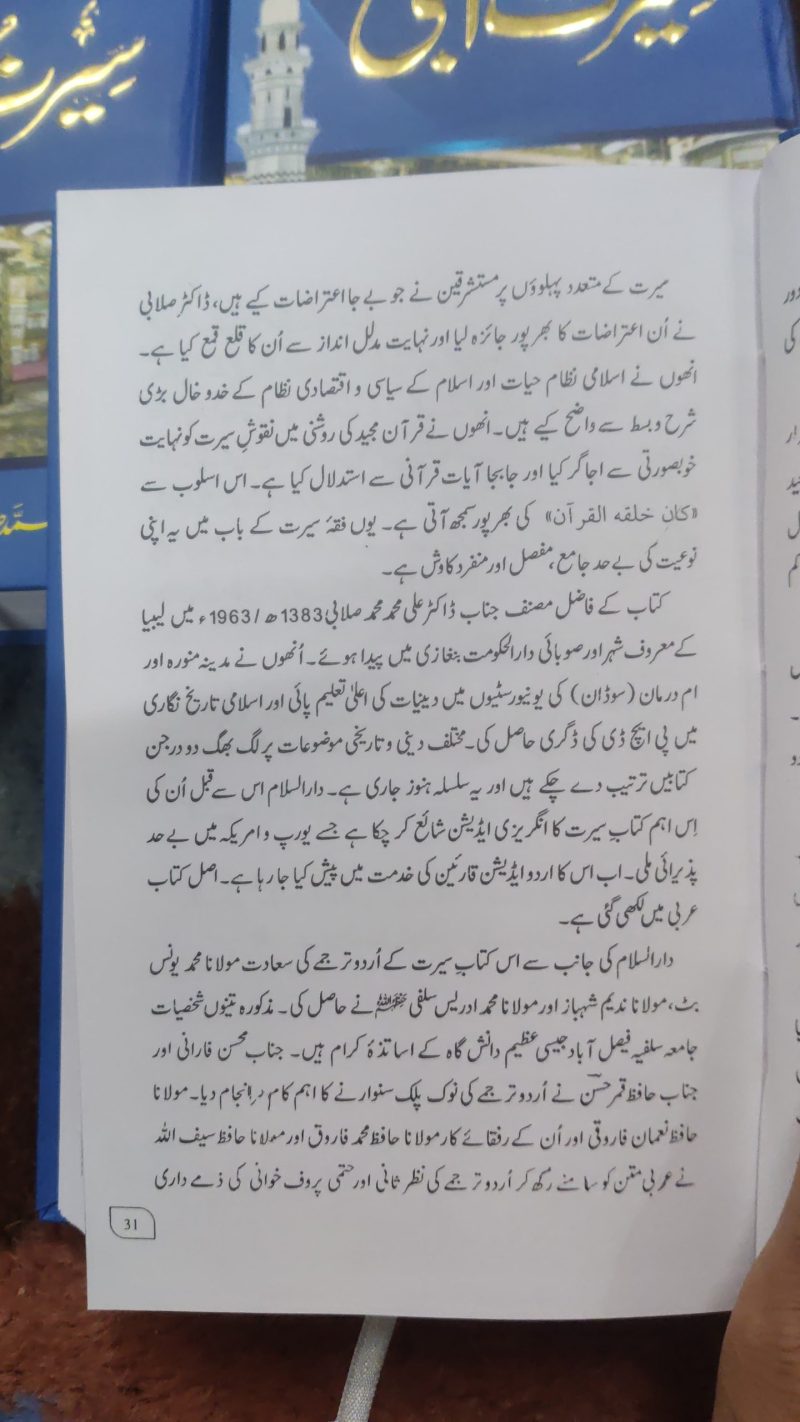 سیرت النبی
سیرت
سیرت کے متعدد پہلوؤں پر مستشرقین نے جو بے جا اعتراضات کیے ہیں، ڈاکٹر صلابی
نے اُن اعتراضات کا بھرپور جائزہ لیا اور نہایت مدلل انداز سے اُن کا قلع قمع کیا ہے۔
انھوں نے اسلامی نظام حیات اور اسلام کے سیاسی و اقتصادی نظام کے خدوخال بڑی
شرح وبسط سے واضح کیے ہیں۔ انھوں نے قرآن مجید کی روشنی میں نقوشِ سیرت کو نہایت
خوبصورتی سے اجاگر کیا اور جابجا آیات قرآنی سے استدلال کیا ہے۔ اس اسلوب سے
«کان خلقه القرآن» کی بھرپور سمجھ آتی ہے۔ یوں فقۂ سیرت کے باب میں یہ اپنی
نوعیت کی بے حد جامع، مفصل اور منفرد کاوش ہے۔
کتاب کے فاضل مصنف جناب ڈاکٹر علی محمد محمد صلابی 1383ھ / 1963ء میں لیبیا
کے معروف شہر اور صوبائی دارالحکومت بنغازی میں پیدا ہوئے۔ اُنھوں نے مدینہ منورہ اور
ام درمان (سوڈان) کی یونیورسٹیوں میں دینیات کی اعلیٰ تعلیم پائی اور اسلامی تاریخ نگاری
میں پی ایچ ڈی کی ڈگری حاصل کی۔ مختلف دینی و تاریخی موضوعات پر لگ بھگ دو درجن
کتابیں ترتیب دے چکے ہیں اور یہ سلسلہ ہنوز جاری ہے۔ دارالسلام اس سے قبل اُن کی
اِس اہم کتابِ سیرت کا انگریزی ایڈیشن شائع کر چکا ہے جسے یورپ و امریکہ میں بے حد
پذیرائی ملی۔ اب اس کا اردو ایڈیشن قارئین کی خدمت میں پیش کیا جا رہا ہے۔ اصل کتاب
عربی میں لکھی گئی ہے۔
دارالسلام کی جانب سے اس کتابِ سیرت کے اُردو ترجمے کی سعادت مولانا محمد یونس
بٹ، مولانا ندیم شہباز اور مولانا محمد ادریس سلفی نے حاصل کی۔ مذکورہ تینوں شخصیات
جامعہ سلفیہ فیصل آباد جیسی عظیم دانش گاہ کے اساتذۂ کرام ہیں۔ جناب محسن فارانی اور
جناب حافظ قمر حسن نے اُردو ترجمے کی نوک پلک سنوارنے کا اہم کام انجام دیا۔ مولانا
حافظ نعمان فاروقی اور اُن کے رفقائے کار مولانا حافظ محمد فاروق اور مولانا حافظ سیف اللہ
نے عربی متن کو سامنے رکھ کر اُردو ترجمے کی نظر ثانی اور حتمی پروف خوانی کی ذمے داری
31